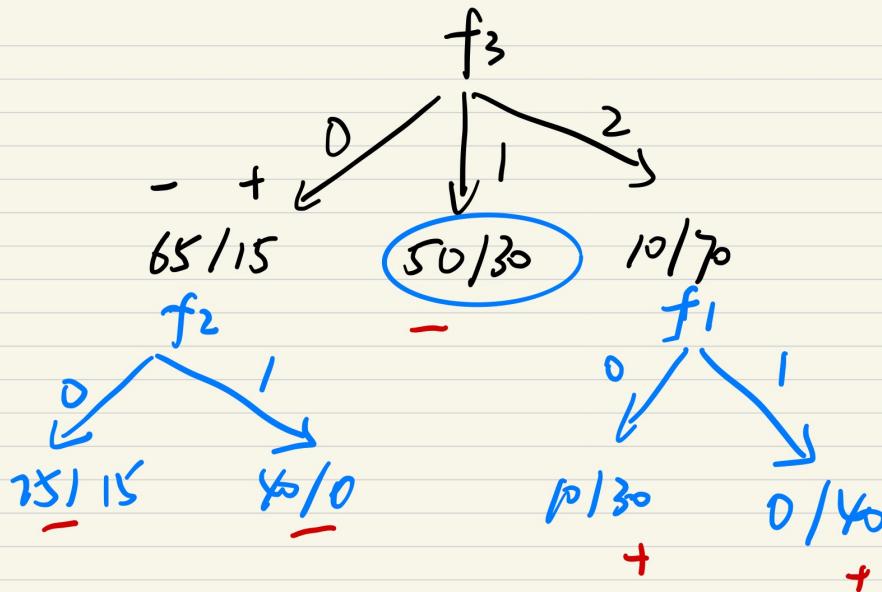 f3
0 1 2
- +
65/15 50/30 10/70
-
f2 f1
0 1 0 1
25/15 40/0 10/30 0/40
- - + +